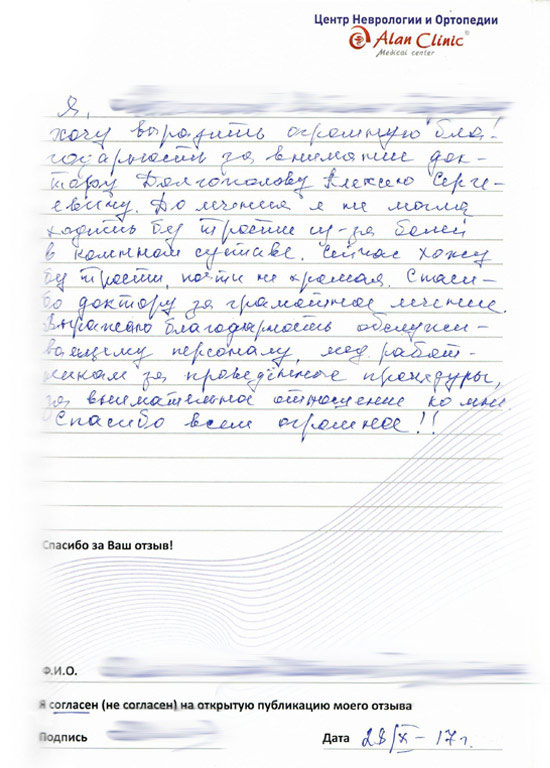 Центр Неврологии и Ортопедии
Alan Clinic®
Medical center
Я,
хочу выразить огромную бла-
годарность за внимание док-
тору Долгополову Алексею Серге-
евичу. До лечения я не могла
ходить без трости из-за болей
в коленном суставе. Сейчас хожу
без трости, почти не хромая. Спаси-
бо доктору за грамотное лечение.
Выражаю благодарность обслужи-
вающему персоналу, мед. работ-
никам за проведённые процедуры,
за внимательное отношение ко мне.
Спасибо всем огромное!!
Спасибо за Ваш отзыв!
Ф.И.О.
Я согласен (не согласен) на открытую публикацию моего отзыва
Подпись Дата 28/X-17г.